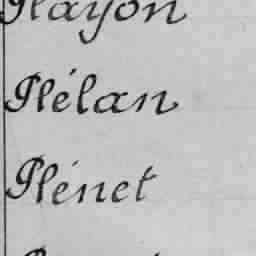 Playon
Plélan
Plénet